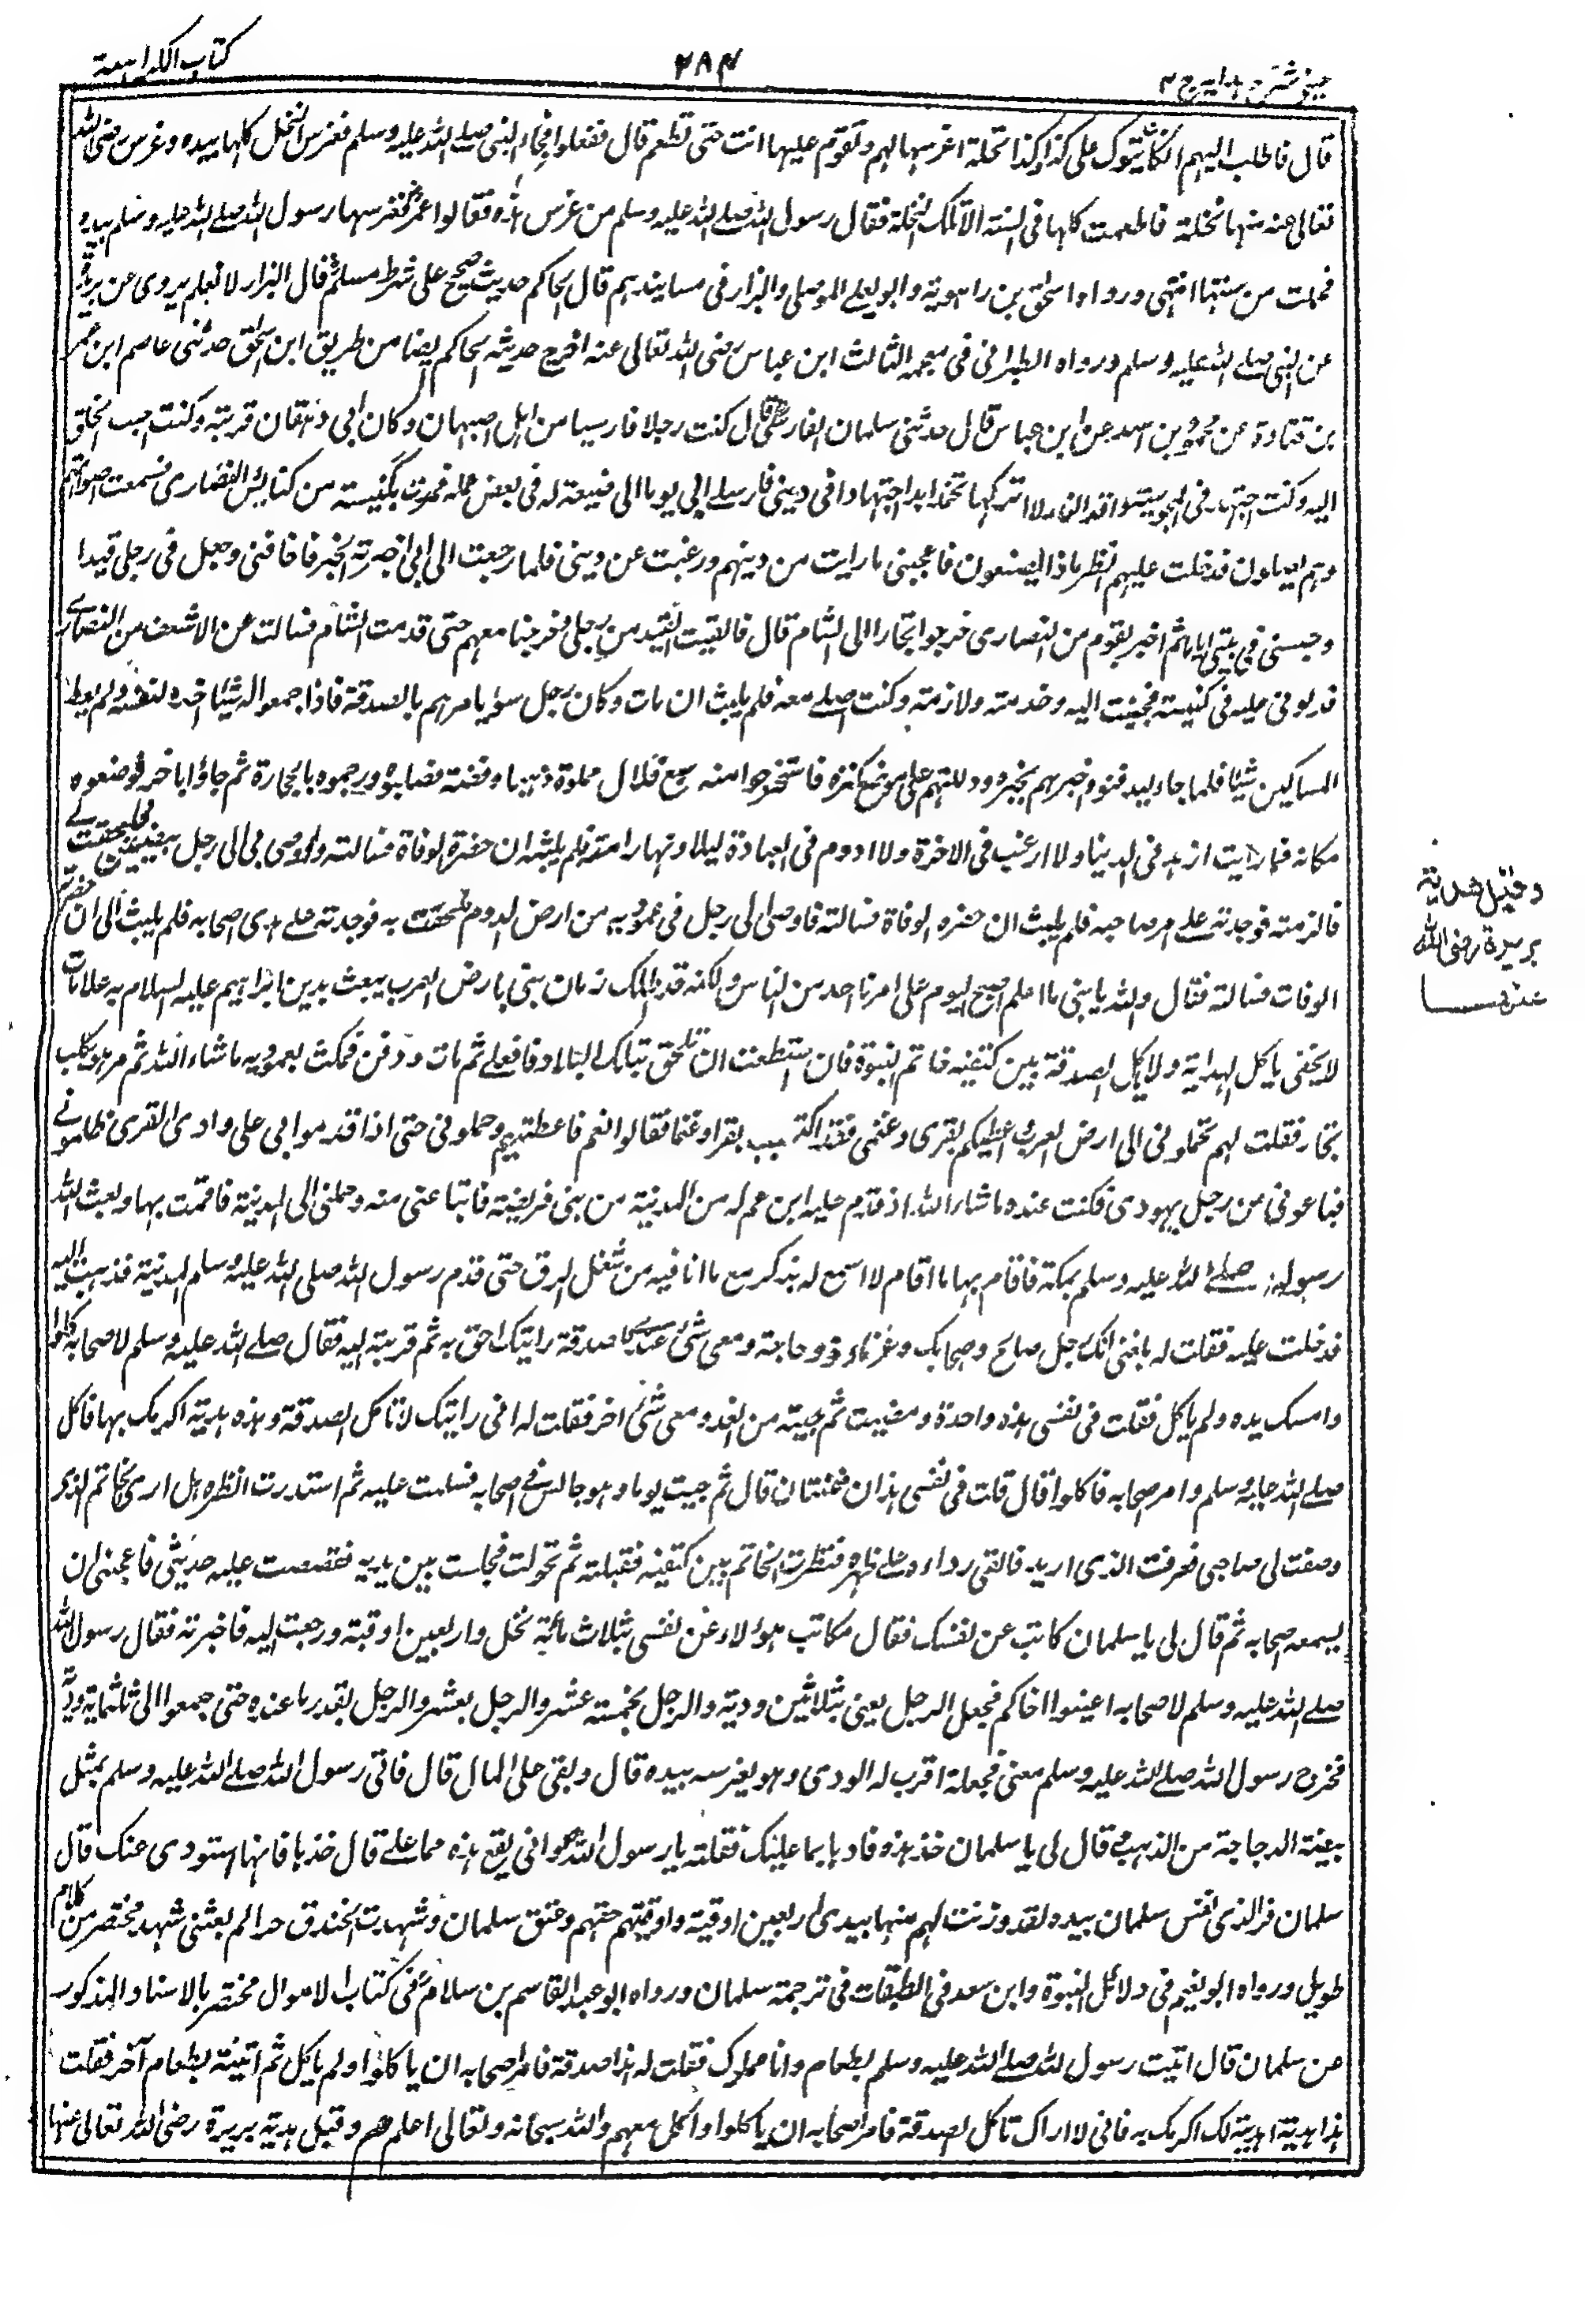 كتاب الكراهية
٢٨٤
عينى شرح هدايه ج ٤
قال فاطلب اليهم ان يكاتبوك على كذا وكذا نخلة اغرسها لهم وتقوم عليها انت حتى تطعم قال ففعلوا فجاء النبى صلے الله عليه وسلم فغرس النخل كلها بيده وغرس عمر رضى الله
تعالى عنه منها نخلة فاطعمت كلها فى السنة الا تلك النخلة فقال رسول الله صلے الله عليه وسلم من غرس هذه فقالوا عمر فغرسها رسول الله صلے الله عليه وسلم بيده
فحملت من سنتها انتهى ورواه اسحق بن راهوية وابو يعلے الموصلى والبزار فى مسانيدهم قال الحاكم حديث صحيح على شرط مسلم قال البزار لا نعلم يروى عن بريدة
عن النبى صلے الله عليه وسلم ورواه الطبرانى فى معجمه الثالث ابن عباس رضى الله تعالى عنه اخرج حديثه الحاكم ايضا من طريق ابن اسحق حدثنى عاصم ابن عمر
بن قتادة عن محمود بن اسد عن ابن عباس قال حدثنى سلمان الفارسى قال كنت رجلا فارسيا من اهل اصبهان وكان ابى دهقان قرية وكنت احب الخلق
اليه وكنت اجتهد فى المجوسية اوقد النار لا اتركها تخمد ابدا اجتهادا فى دينى فارسلے ابى يوما الى ضيعة له فى بعض عمله فمررت بكنيسة من كنايس النصارى فسمعت اصواتهم
وهم يصلون فدخلت عليهم انظر ماذا يصنعون فاعجبنى ما رايت من دينهم ورغبت عن دينى فلما رجعت الى ابى اخبرته الخبر فاخافنى وجعل فى رجلى قيدا
وحبسنى فى بيتى اياما ثم اخبر بقوم من النصارى خرجوا تجارا الى الشام قال فالقيت القيد من رجلى فخرجنا معهم حتى قدمت الشام فسالت عن الاسقف من النصارى
فدلونى عليه فى كنيسة فجئت اليه وخدمته ولازمته وكنت اصلے معه فلم يلبث ان مات وكان رجل سوء يامرهم بالصدقة فاذا جمعوا له شيئا اخذه لنفسه ولم يعط
المساكين شيئا فلما جاء ليدفنوه اخبرهم بخبره ودللتهم على موضع كنزه فاستخرجوا منه سبع قلال مملوة ذهبا وفضة فصلبوه ورجموه بالحجارة ثم جاؤا باخر فوضعوه
مكانه فما رايت ازهد فى الدنيا ولا ارغب فى الاخرة ولا ادوم فى العبادة ليلا ونهارا منه فلم يلبث ان حضرة الوفاة فسالته واوصى بى الى رجل بنصيبين فلحقت
فالزمته فوجدته على امر صاحبه فلم يلبث ان حضره الوفاة فسالته فاوصى الى رجل فى عموريه من ارض الروم فلحقت به فوجدته على هدى اصحابه فلم يلبث الى ان حضرته
الوفات فسالته فقال والله يا بنى ما اعلم اصبح اليوم على امرنا احد من الناس ولكنه قد اظلك زمان نبى بارض العرب يبعث بدين ابراهيم عليه السلام به علامات
لا يخفى ياكل الهداية ولا ياكل الصدقة بين كتفيه خاتم النبوة فان استطعت ان تلحق بتلك البلاد فافعل ثم مات ودفن فمكثت بعموريه ما شاء الله ثم مر بى كلب
تجار فقلت لهم تحملونى الى ارض العرب اعطيكم بقرى وغنمى فقد اكتسبت بقرا وغنما فقالوا نعم فاعطيتهم وحملونى حتى اذا قدموا بى على وادى القرى ظلمونى
فباعونى من رجل يهودى فكنت عنده ما شاء الله اذ قدم عليه ابن عم له من المدينة من بنى قريضة فابتاعنى منه وحملنى الى المدينة فاقمت بها وبعث الله
رسوله صلے الله عليه وسلم بمكة فاقام بها ما اقام لا اسمع له بذكر مع ما انا فيه من شغل الرق حتى قدم رسول الله صلى الله عليه وسلم المدينة فذهبت اليه
فدخلت عليه فقلت له بلغنى انك رجل صالح وصحابك وغرباء ذو حاجة ومعى شئ عندى كا صدقة رايتك احق به ثم قربته اليه فقال صلے الله عليه وسلم لاصحابه كلوا
وامسك يده ولم ياكل فقلت فى نفسى هذه واحدة ومضيت ثم جيته من الغد ومعى شئ اخر فقلت له انى رايتك لا تاكل الصدقة وهذه هدية اكرمك بها فاكل
صلے الله عليه وسلم وامر اصحابه فاكلوا قال قلت فى نفسى هذان ثنتان قال ثم جيت يوما وهو جالس فى اصحابه فسلمت عليه ثم استدرت انظره هل ارى الخاتم الذى
وصفت لى صاحبى فعرفت الذى اريد فالقى رداءه على ظهره فنظرت الخاتم بين كتفيه فقبلته ثم تحولت فجلست بين يديه فقصصت عليه حديثى فاعجبنى ان
يسمعه اصحابه ثم قال لى يا سلمان كاتب عن نفسك فقال مكاتب هؤلاء عن نفسى بثلاث مائة نخل واربعين اوقية ورجعت اليه فاخبرته فقال رسول الله
صلے الله عليه وسلم لاصحابه اعينوا اخاكم فجعل الرجل يعنى بثلاثين ودية والرجل بخمسة عشر والرجل بعشر والرجل بقدر ما عنده حتى جمعوا الى ثلثماية ودية
فخرج رسول الله صلے الله عليه وسلم معنى فجعلة اقرب له الودى وهو يغرسه بيده قال وبقى على المال قال فاتى رسول الله صلے الله عليه وسلم بمثل
بيضة الدجاجة من الذهب قال لى يا سلمان خذ هذه فاد بها بما عليك فقلته يا رسول الله وانى يقع هذه مما على قال خذ بها فانها استودى عنك قال
سلمان فو الذى نفس سلمان بيده لقد وزنت لهم منها بيدى اربعين اوقية واوفيتهم حقهم وعتق سلمان وشهدت الخندق حرا لم يعثنى شهد مختصر من كلام
طويل ورواه ابو نعيم فى دلائل النبوة وابن سعد فى الطبقات فى ترجمة سلمان ورواه ابو عبد القاسم بن سلام فى كتاب الاموال مختصر بالاسناد المذكور
عن سلمان قال اتيت رسول الله صلے الله عليه وسلم بطعام وانا مملوك فقلت له هذا صدقة فامر اصحابه ان ياكلوا ولم ياكل ثم اتيته بطعام آخر فقلت
هذا هدية اهديته لك اكرمك به فانى لا اراك تاكل الصدقة فامر اصحابه ان ياكلوا واكل معهم والله سبحانه وتعالى اعلم هم وقبل هدية بريرة رضى الله تعالى عنها
وقبل هدية
بريدة رضى الله
عنها